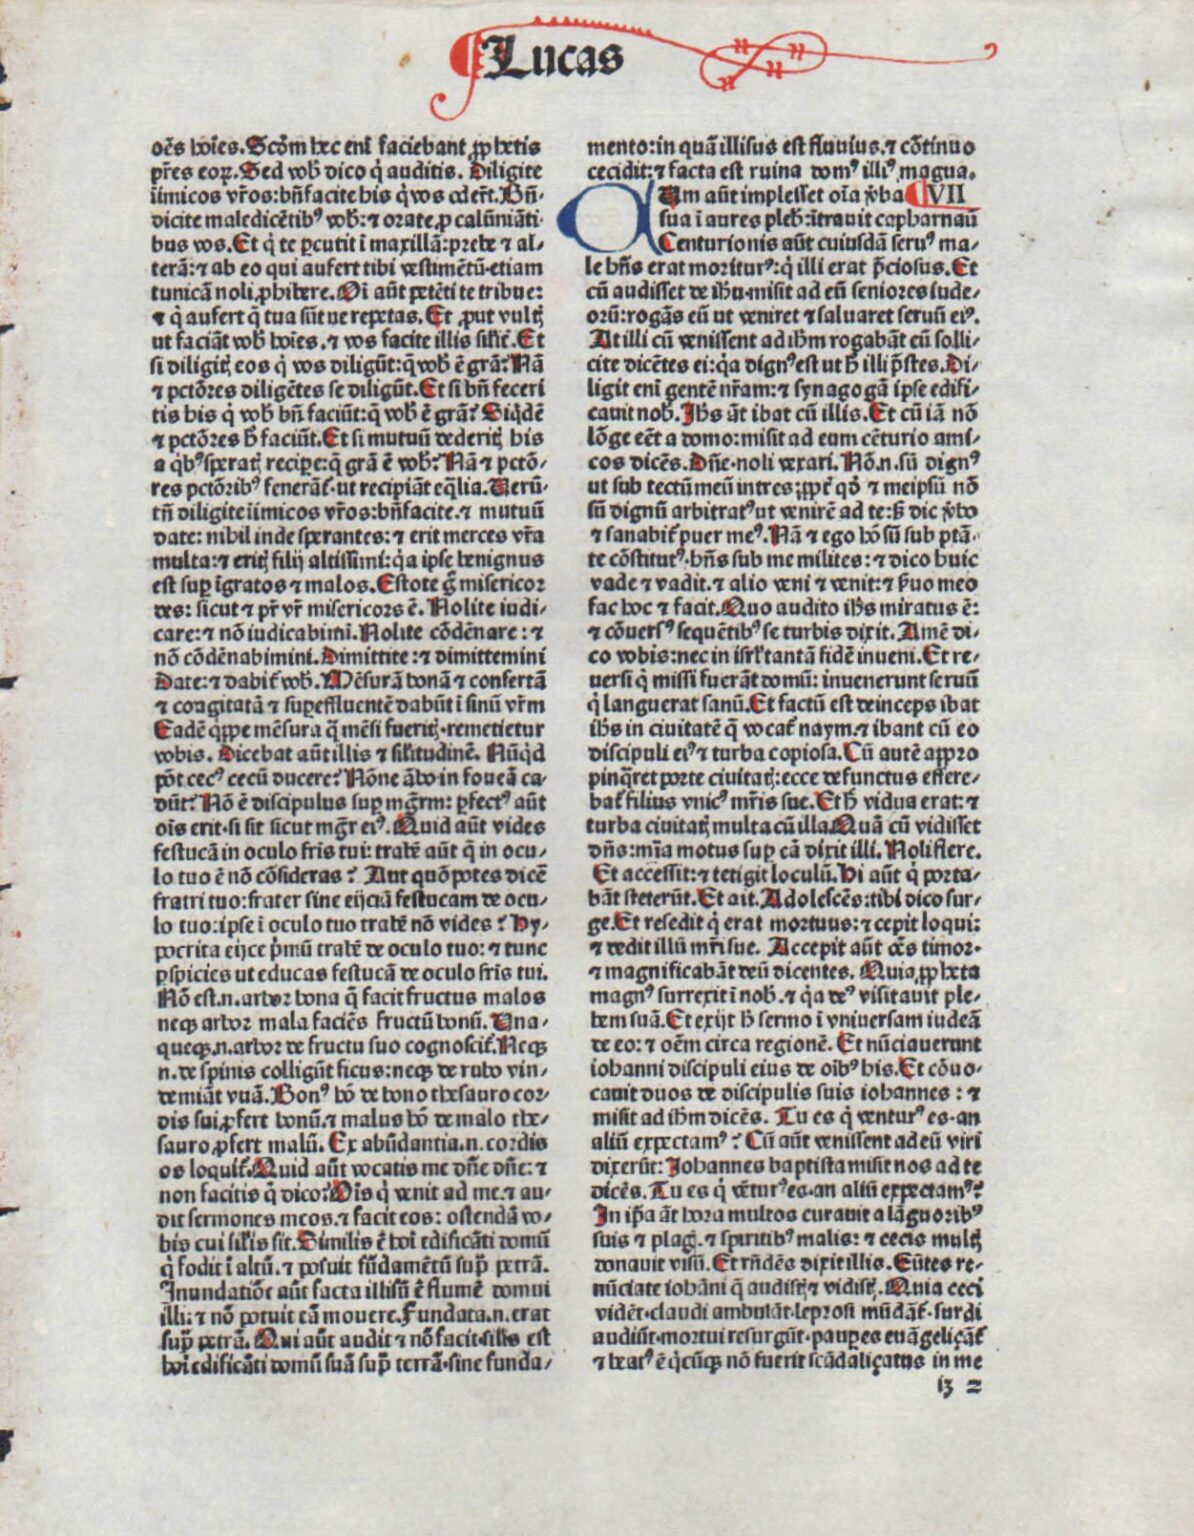 Lucas
oēs hoīes. Scḋm hec enī faciebant ꝓphetis
pr̄es eoꝝ. Sed vob̄ dico q̇ auditis. Diligite
iīmicos vr̄os: bn̄facite his q̇ vos oder̄t. Bn̄-
dicite maledicētibꝰ vob̄: ⁊ orate ꝓ calūniāti
bus vos. Et q̇ te ꝑcutit ī maxillā: prebe ⁊ al-
terā: ⁊ ab eo qui aufert tibi vestimētū. etiam
tunicā noli ꝓhibere. Oī aūt petēti te tribue:
⁊ q̄ aufert q̄ tua sūt ne repetas. Et ꝓut vultꝭ
ut faciāt vob̄ hoīes. ⁊ vos facite illis sil̄it̄. Et
si diligitꝭ eos q̇ vos diligūt: q̄ vob̄ ē grā? Nā
⁊ pctōres diligētes se diligūt. Et si bn̄ feceri
tis his q̇ vob̄ bn̄ faciūt: q̄ vob̄ ē grā? Siq̇dē
⁊ pctōres h̄ faciūt. Et si mutuū dederitꝭ his
a q̇bꝰ speratꝭ recipe: q̄ grā ē vob̄? Nā ⁊ pctō-
res pctōribꝰ fenerāt̄. ut recipiāt eq̄lia. Verū-
tn̄ diligite iīmicos vr̄os: bn̄facite. ⁊ mutuū
date: nihil inde sperantes: ⁊ erit merces vr̄a
multa: ⁊ eritꝭ filij altissimi: q̇a ipse benignus
est suꝑ īgratos ⁊ malos. Estote g̊ misericor
des: sicut ⁊ pr̄ vr̄ misericors ē. Nolite iudi-
care: ⁊ nō iudicabimī. Nolite cōdēnare: ⁊
nō cōdēnabimini. Dimittite: ⁊ dimittemini
Date: ⁊ dabit̄ vob̄. Mēsurā bonā ⁊ confertā
⁊ coagitatā ⁊ suꝑeffluentē dabūt ī sinū vr̄m
Eadē q̇ppe mēsura q̄ mēsi fueritꝭ. remetietur
vobis. Dicebat aūt illis ⁊ sil̄itudinē. Nūq̇d
pōt cecꝰ cecū ducere? Nōne ābo in foueā ca-
dūt? Nō ē discipulus suꝑ mgr̄m: ꝑfectꝰ aūt
oīs erit. si sit sicut mgr̄ eiꝰ. Quid aūt vides
festucā in oculo fr̄is tui: trabē aūt q̄ in ocu-
lo tuo ē nō cōsideras? Aut quō potes dicē
fratri tuo: frater sine eijciā festucam de ocu-
lo tuo: ipse ī oculo tuo trabē nō vides? Hy-
pocrita eijce p̄mū trabē de oculo tuo: ⁊ tunc
ꝑspicies ut educas festucā de oculo fr̄is tui.
Nō est .n. arbor bona q̄ facit fructus malos
neqꝫ arbor mala faciēs fructū bonū. Vna-
queqꝫ .n. arbor de fructu suo cognoscit̄. Neqꝫ
.n. de spinis colligūt ficus: neqꝫ de rubo vin-
demiāt vuā. Bonꝰ hō de bono thesauro cor-
dis sui ꝓfert bonū. ⁊ malus hō de malo the-
sauro ꝓfert malū. Ex abūdantia .n. cordis
os loquit̄. Quid aūt vocatis me dn̄e dn̄e: ⁊
non facitis q̄ dico? Oīs q̇ venit ad me. ⁊ au-
dit sermones meos. ⁊ facit eos: ostendā vo-
bis cui sil̄is sit. Similis ē hoī edificāti domū
q̇ fodit ī altū. ⁊ posuit fūdamētū supͣ petrā.
Inundatiōe aūt facta illisū ē flumē domui
illi: ⁊ nō potuit eā mouere. Fundata .n. erat
supͣ petrā. Qui aūt audit ⁊ nō facit. sil̄is est
hoī edificāti domū suā supͣ terrā. sine funda-
mento: in quā illisus est fluuius. ⁊ cōtinuo
cecidit: ⁊ facta est ruina domꝰ illiꝰ magna.
CUm aūt implesset oīa v̓ba VII
sua ī aures pleb̄: ītrauit capharnaū
Centurionis aūt cuiusdā seruꝰ ma-
le hn̄s erat moriturꝰ: q̇ illi erat p̄ciosus. Et
cū audisset de ih̄u. misit ad eū seniores iude-
orū: rogās eū ut veniret ⁊ saluaret seruū eiꝰ.
At illi cū venissent ad ih̄m rogabāt eū solli-
cite dicētes ei: q̇a dignꝰ est ut h̄ illi p̄stes. Di-
ligit enī gentē nr̄am: ⁊ synagogā ipse edifi-
cauit nob̄. Ih̄s āt ibat cū illis. Et cū iā nō
lōge eēt a domo: misit ad eum cēturio ami-
cos dicēs. Dn̄e. noli vexari. Nō .n. sū dignꝰ
ut sub tectū meū intres: ꝓpt̄ qḋ ⁊ meipsū nō
sū dignū arbitratꝰ ut venirē ad te: s̄ dic v̓bo
⁊ sanabit̄ puer meꝰ. Nā ⁊ ego hō sū sub ptā-
te cōstitutꝰ. hn̄s sub me milites: ⁊ dico huic
vade ⁊ vadit. ⁊ alio veni ⁊ venit: ⁊ s̓uo meo
fac hoc ⁊ facit. Quo audito ih̄s miratus ē:
⁊ cōuersꝰ sequētibꝰ se turbis dixit. Amē di-
co vobis: nec in isrl̄ tantā fidē inueni. Et re-
uersi q̇ missi fuerāt domū: inuenerunt seruū
q̇ languerat sanū. Et factū est deinceps ibat
ih̄s in ciuitatē q̄ vocat̄ naym. ⁊ ibant cū eo
discipuli eiꝰ ⁊ turba copiosa. Cū autē appro
pinq̄ret porte ciuitatꝭ: ecce defunctus effere-
bat̄ filius vnicꝰ mr̄is sue. Et h̄ vidua erat: ⁊
turba ciuitatꝭ multa cū illa. Quā cū vidisset
dn̄s: mīa motus suꝑ eā dixit illi. Noli flere.
Et accessit: ⁊ tetigit loculū. Hi aūt q̇ porta-
bāt steterūt. Et ait. Adolescēs: tibi dico sur-
ge. Et resedit q̇ erat mortuus: ⁊ cepit loqui:
⁊ dedit illū mr̄i sue. Accepit aūt oēs timor.
⁊ magnificabāt deū dicentes. Quia ꝓpheta
magnꝰ surrexit ī nob̄. ⁊ q̇a deꝰ visitauit ple-
bem suā. Et exijt h̄ sermo ī vniuersam iudeā
de eo: ⁊ oēm circa regionē. Et nūciauerunt
iohanni discipuli eius de oībꝰ his. Et cōuo-
cauit duos de discipulis suis iohannes: ⁊
misit ad ih̄m dicēs. Tu es q̇ venturꝰ es. an
aliū expectamꝰ? Cū aūt venissent ad eū viri
dixerūt: Johannes baptista misit nos ad te
dicēs. Tu es q̇ vēturꝰ es. an aliū expectamꝰ?
In ip̄a āt hora multos curauit a lāguoribꝰ
suis ⁊ plagꝭ. ⁊ spiritibꝰ malis: ⁊ cecis multꝭ
donauit visū. Et rn̄dēs dixit illis. Eūtes re-
nūciate iohāni q̄ audistꝭ ⁊ vidistꝭ. Quia ceci
vidēt. claudi ambulāt. leprosi mūdāt̄. surdi
audiūt. mortui resurgūt. pauꝑes euāgelizāt̄
⁊ beatꝰ ē q̇cūqꝫ nō fuerit scādalizatus in me
13 2